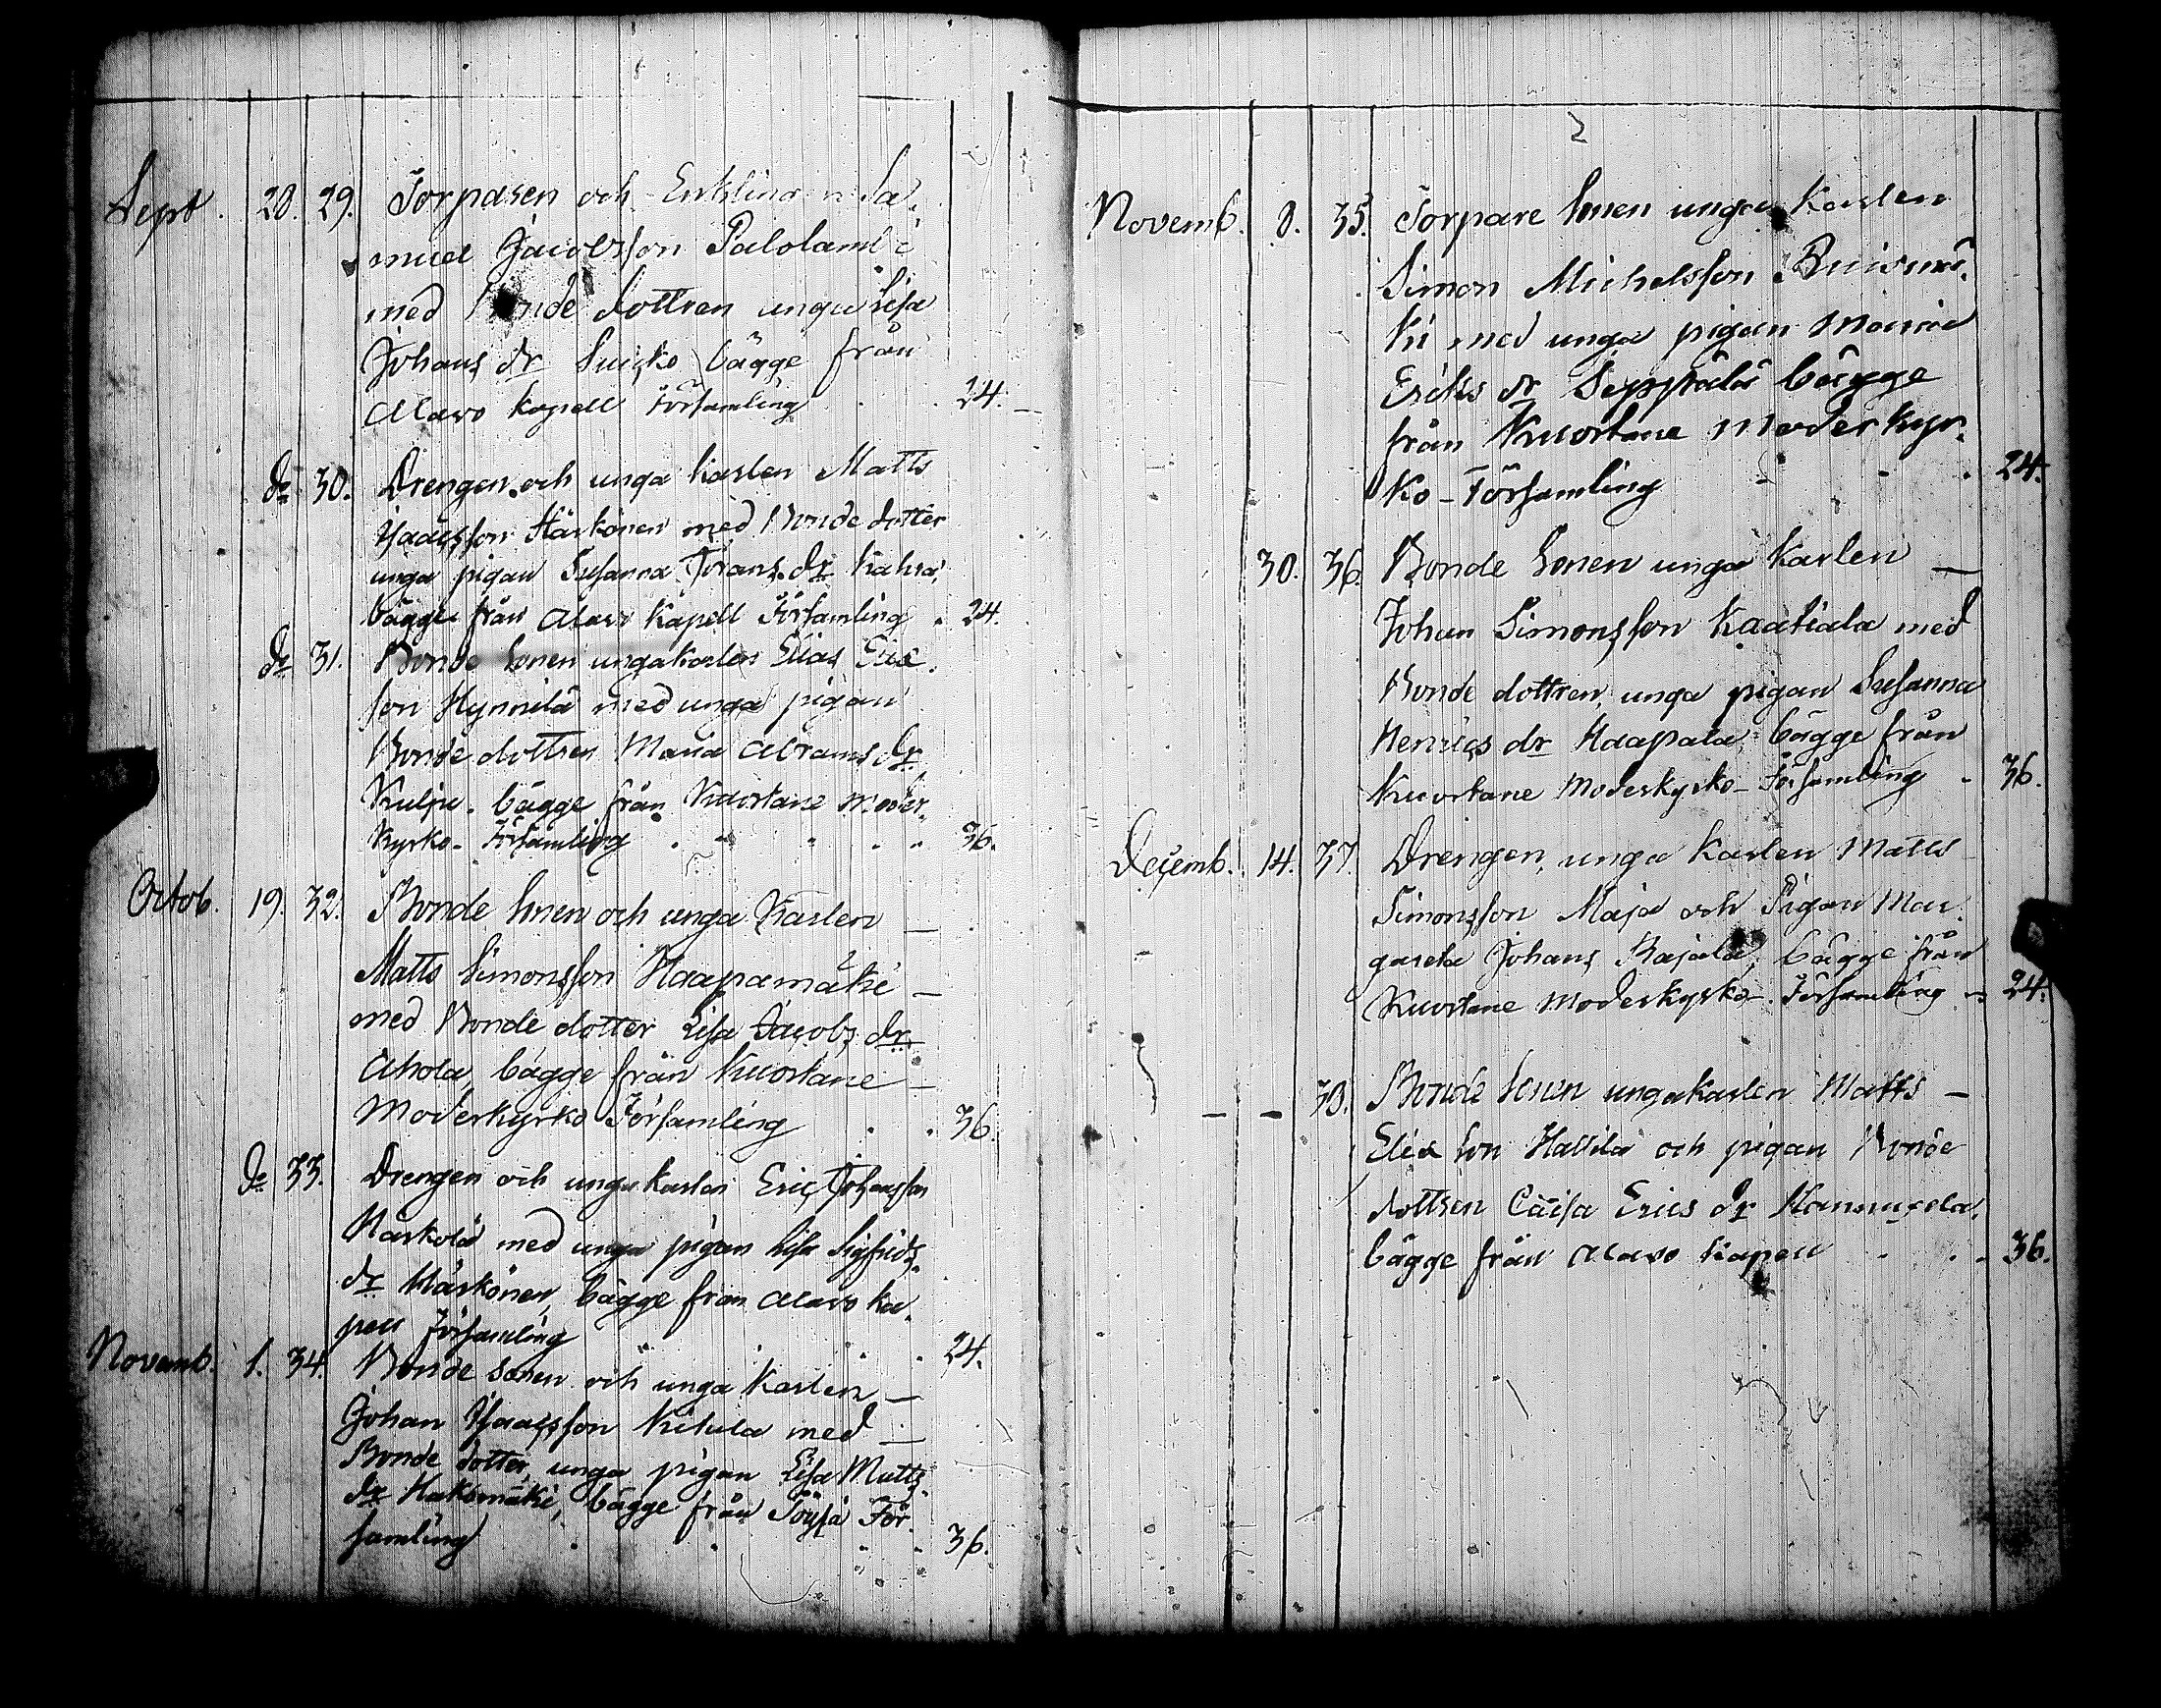 Sept. 28. 29. Torparen och Enklingen Sa-
muel Jacobsson Palolambi
med Bonde dottren unga Lisa
Johans dr Suisko bägge från
Alavo Kapell Församling . . 24. —
do 30. Drengen och unga karlen Matts
Isaacsson Härkönen med Bonde dotter
unga pigan Susanna Johans dr Kahra,
bägge från Alavo Kapell Församling . 24.
do 31. Bonde Sonen unga karlen Elias Eric
son Hynnilä med unga pigan
Bonde dottren Maria Abrams dr
Kulju. bägge från Kuortane moder-
kyrko-Församling . . . . . 36.
Octob. 19. 32. Bonde Sonen och unga Karlen —
Matts Simonsson Haapamäki —
med Bonde dotter Lisa Jacobs dr
Ahola, bägge från Kuortane —
Moderkyrko Församling . . 36.
do 33. Drengen och unga karlen Eric Johansson
Härkölä med unga pigan Lisa Sigfrids
dr Härkönen, bägge från Alavo Ka-
pell Församling . . . . 24.
Novemb. 1. 34. Bonde sonen och unga Karlen —
Johan Isaacsson Kitula med —
Bonde dotter, unga pigan Lisa Matts
dr Hakomäki, bägge från Töysä För-
samling . . . . 36.
Novemb. 8. 35. Torpare Sonen unga Karlen
Simon Michelsson Ruismä-
ki med unga pigan Maria
Eriks dr Seppälä bägge
från Kuortane moderkyr-
ko-Församling . . . 24.
30. 36. Bonde Sonen unga Karlen —
Johan Simonsson Kaatiala med
Bonde dottren, unga pigan Susanna
Henrics dr Haapala, bägge från
Kuortane Moderkyrko-Församling . 36.
Decemb. 14. 37. Drengen, unga karlen Matts
Simonsson Maja och Pigan Mar-
gareta Johans Rajala, bägge från
Kuortane moderkyrko-Församling 24.
— — 38. Bonde Sonen unga karlen Matts —
Elia Son Hallila och pigan Bonde
dottren Caisa Erics dr Hannuxela,
bägge från Alavo Kapell . . . 36.